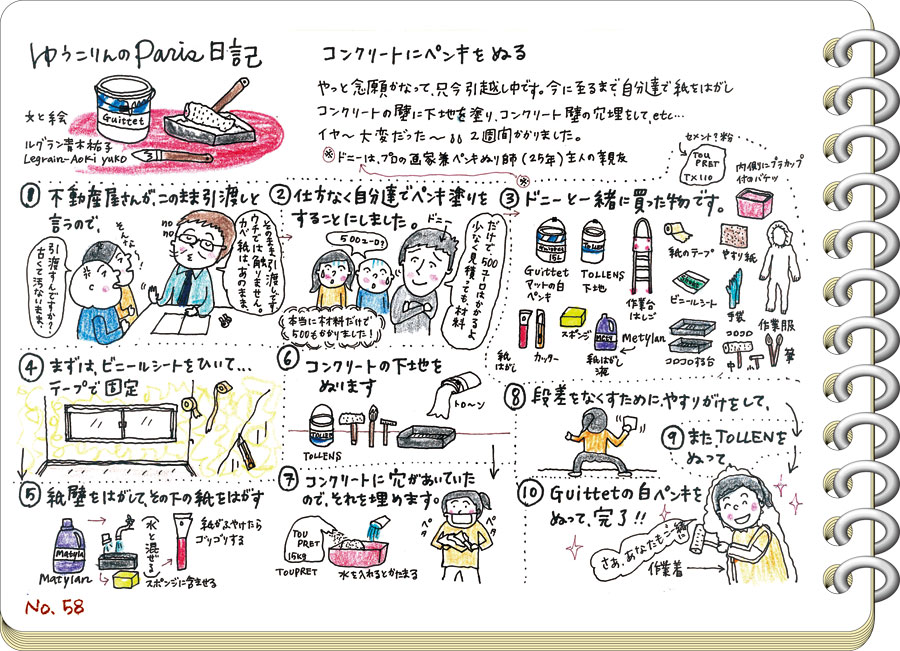 ゆうこりんのParis日記
文と絵
ルグラン青木祐子
Legrain-Aoki yuko
Guittet
コンクリートにペンキをぬる
やっと念願かなって、只今引越し中です。今に至るまで自分達で紙をはがし
コンクリートの壁に下地を塗り、コンクリート壁の穴埋をして、etc…
イヤ〜大変だった〜 2週間かかりました。
※ドニーは、プロの画家兼ペキぬり師(25年)主人の親友
※
①不動産屋さんが、このまま引渡しと
言うので、
引渡すんですか?
古くて汚ないまま、
そんな
no
no
そのまま引渡しです。
ウチでは触りません。
カベ紙は、あのまま。
②仕方なく自分達でペンキ塗りを
することにしました。
ドニー
500ユーロ?
だけで500ユーロはかかるよ
少なく見積っても、材料
本当に材料だけで
500もかかりました!
③ドニーと一緒に買った物です。
セメント?粉
TOU
PRET
TX110
内側にプラカップ
付のバケツ
15L
Guittet
マットの白
ペンキ
TOLLENS
下地
作業台
はしご
紙のテープ
やすり紙
ビニールシート
手袋
作業服
紙
はがし
カッター
スポンジ
Metylan
紙はがし
液
コロコロする台
コロコロ
中
小
筆
④まずは、ビニールシートをひいて…
テープで固定
⑤紙壁をはがして、その下の紙をはがす
Matyla
Matylan
水と混ぜる
スポンジに含ませる
紙がふやけたら
ゴリゴリする
⑥コンクリートの下地を
ぬります
TOLLENS
トロ〜ン
⑦コンクリートに穴があいていた
ので、それを埋めます。
TOU
PRET
15kg
TOUPRET
水を入れるとかたまる
ペタ
ペタ
⑧段差をなくすために、やすりがけをして、
⑨またTOLLENを
ぬって
⑩Guittetの白ペンキを
ぬって、完了!!
さあ、あなたもご一緒に
作業着
No. 58